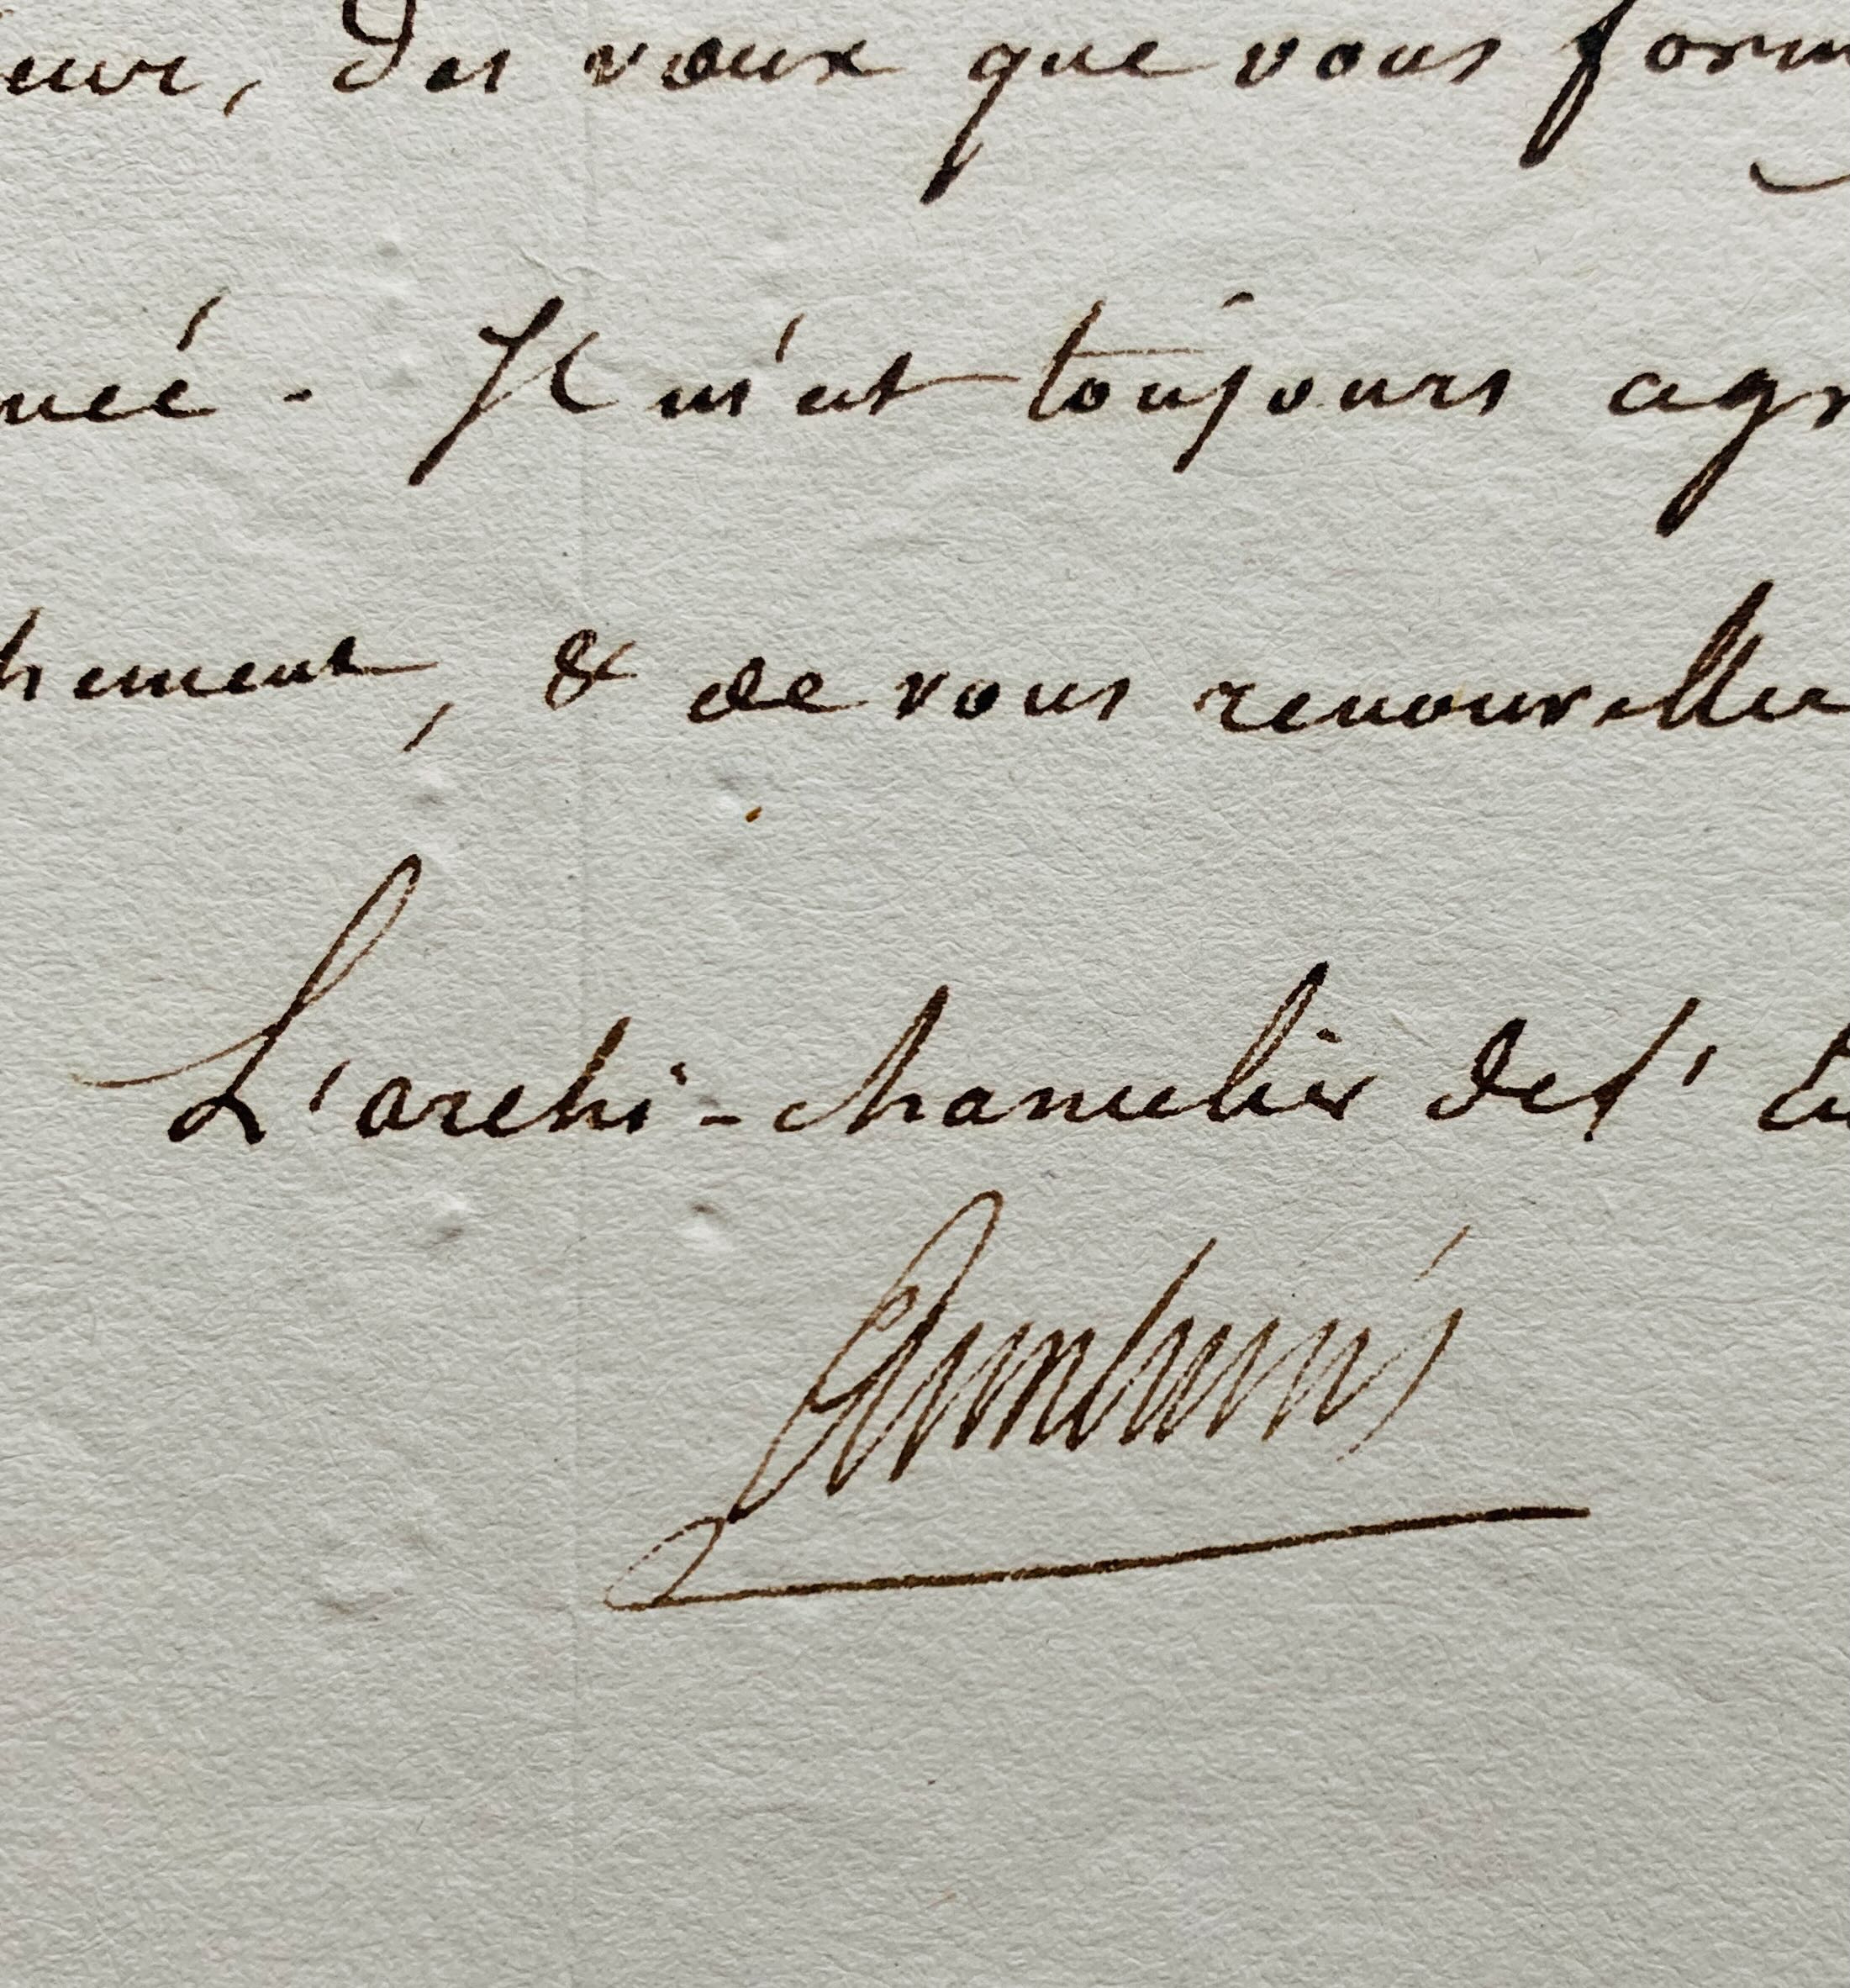 eur, des vœux que vous form
neé. Il m'est toujours agr
hement, & de vous renouveller
L'archi-chancelier de l' Em
Cambacérès